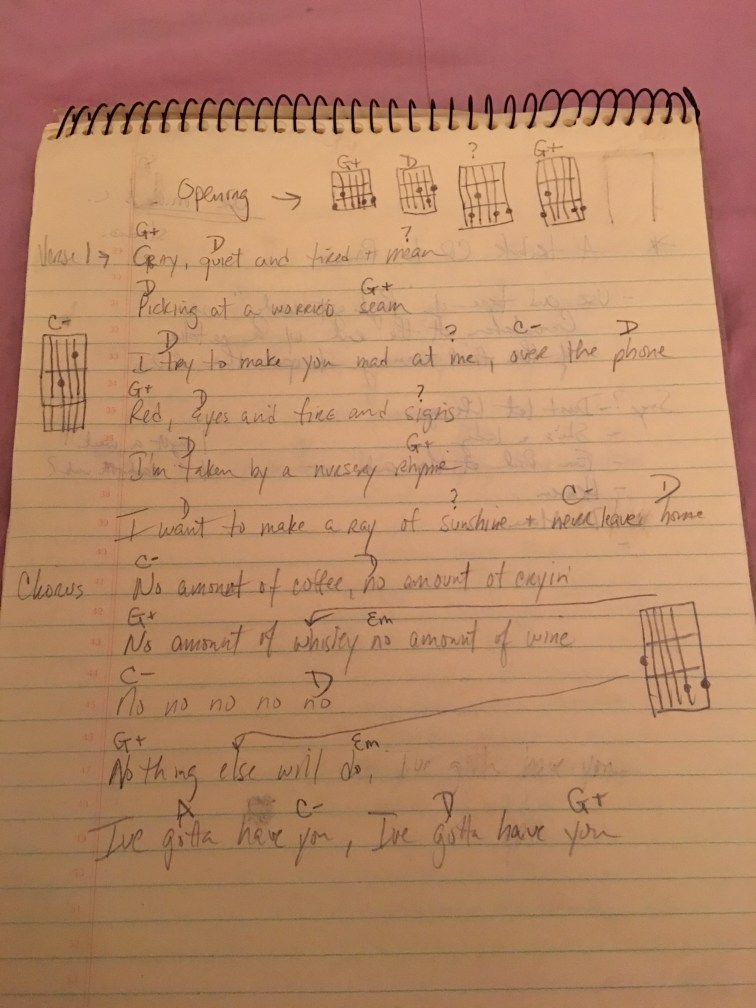 G+ D ? G+
Opening →
G+ D ?
Verse 1 → Gray, quiet and tired + mean
D G+
Picking at a worried seam
C-
D ? C- D
I try to make you mad at me, over the phone
G+ D ?
Red, Eyes and fire and signs
D G+
I'm taken by a nursery rhyme
D ? C- D
I want to make a ray of sunshine + never leave home
C- D
Chorus No amount of coffee, no amount of cryin'
G+ Em
No amount of whiskey no amount of wine
C- D
No no no no no
G+ Em
Nothing else will do, I've gotta have you
A C- D G+
I've gotta have you, I've gotta have you